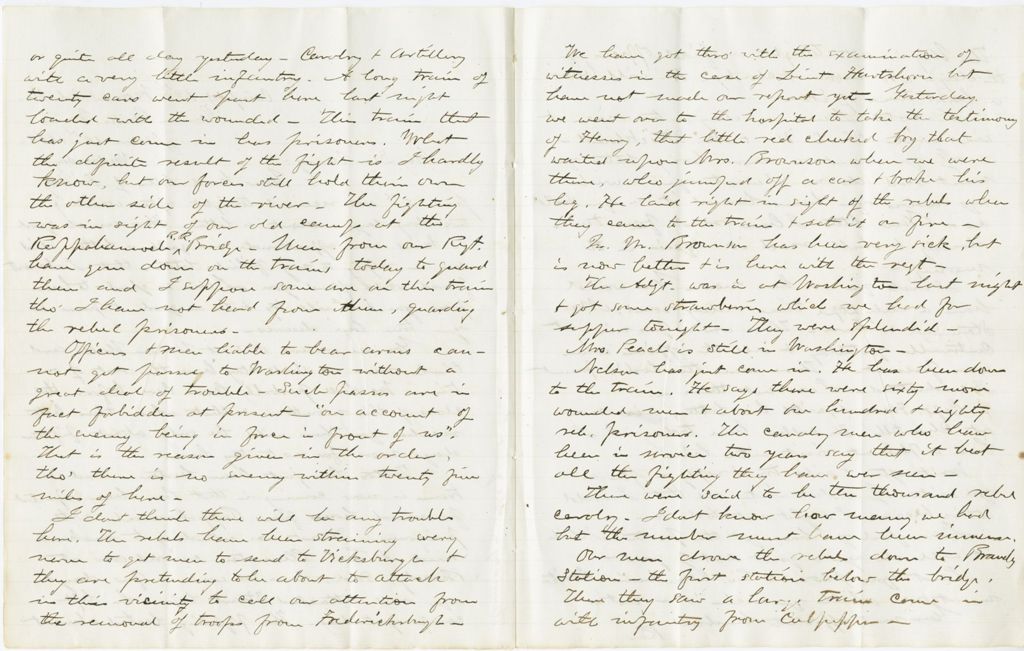 or quite all day yesterday - Cavalry & Artillery
with a very little infantry. A long train of
twenty cars went past here last night
loaded with the wounded - This train that
has just come in has prisoners. What
the definite result of the fight is I hardly
know, but our forces still hold their own
the other side of the river - The fighting
was in sight of our old camp at the
Rappahannock R.R. Bridge. Men from our Regt.
have gone down on the trains today to guard
them and I suppose some are on this train
tho' I have not heard from them, guarding
the rebel prisoners -
Officers & men liable to bear arms can-
not get passes to Washington without a
great deal of trouble - Such passes are in
fact forbidden at present - "on account of
the enemy being in force in front of us".
That is the reason given in the order
tho' there is no enemy within twenty five
miles of here -
I dont think there will be any trouble
here. The rebels have been straining every
nerve to get men to send to Vicksburgh &
they are pretending to be about to attack
in this vicinity to call our attention from
the removal of troops from Fredericksburgh -
We have got thro' with the examination of
witnesses in the case of Lieut Hawtshorn but
have not made our report yet - Yesterday
we went over to the hospital to take the testimony
of Henry, that little red cheeked boy that
waited upon Mrs. Brownson when we were
there, who jumped off a car & broke his
leg. He laid right in sight of the rebels when
they came to the train & set it on fire -
Q. M. Brownson has been very sick, but
is now better & is here with the regt -
The Adjt was in at Washington last night
& got some strawberries which we had for
supper tonight - They were splendid -
Mrs. Peach is still in Washington -
Nelson has just come in. He has been down
to the train. He says there were sixty more
wounded men & about one hundred & eighty
reb. prisoners. The cavalry men who have
been in service two years say that it beat
all the fighting they have ever seen -
There were said to be ten thousand rebel
cavalry - I dont know how many we had
but the number must have been immense.
Our men drove the rebels down to Brandy
Station - the first station below the bridge.
There they saw a large train come in
with infantry from Culpepper -